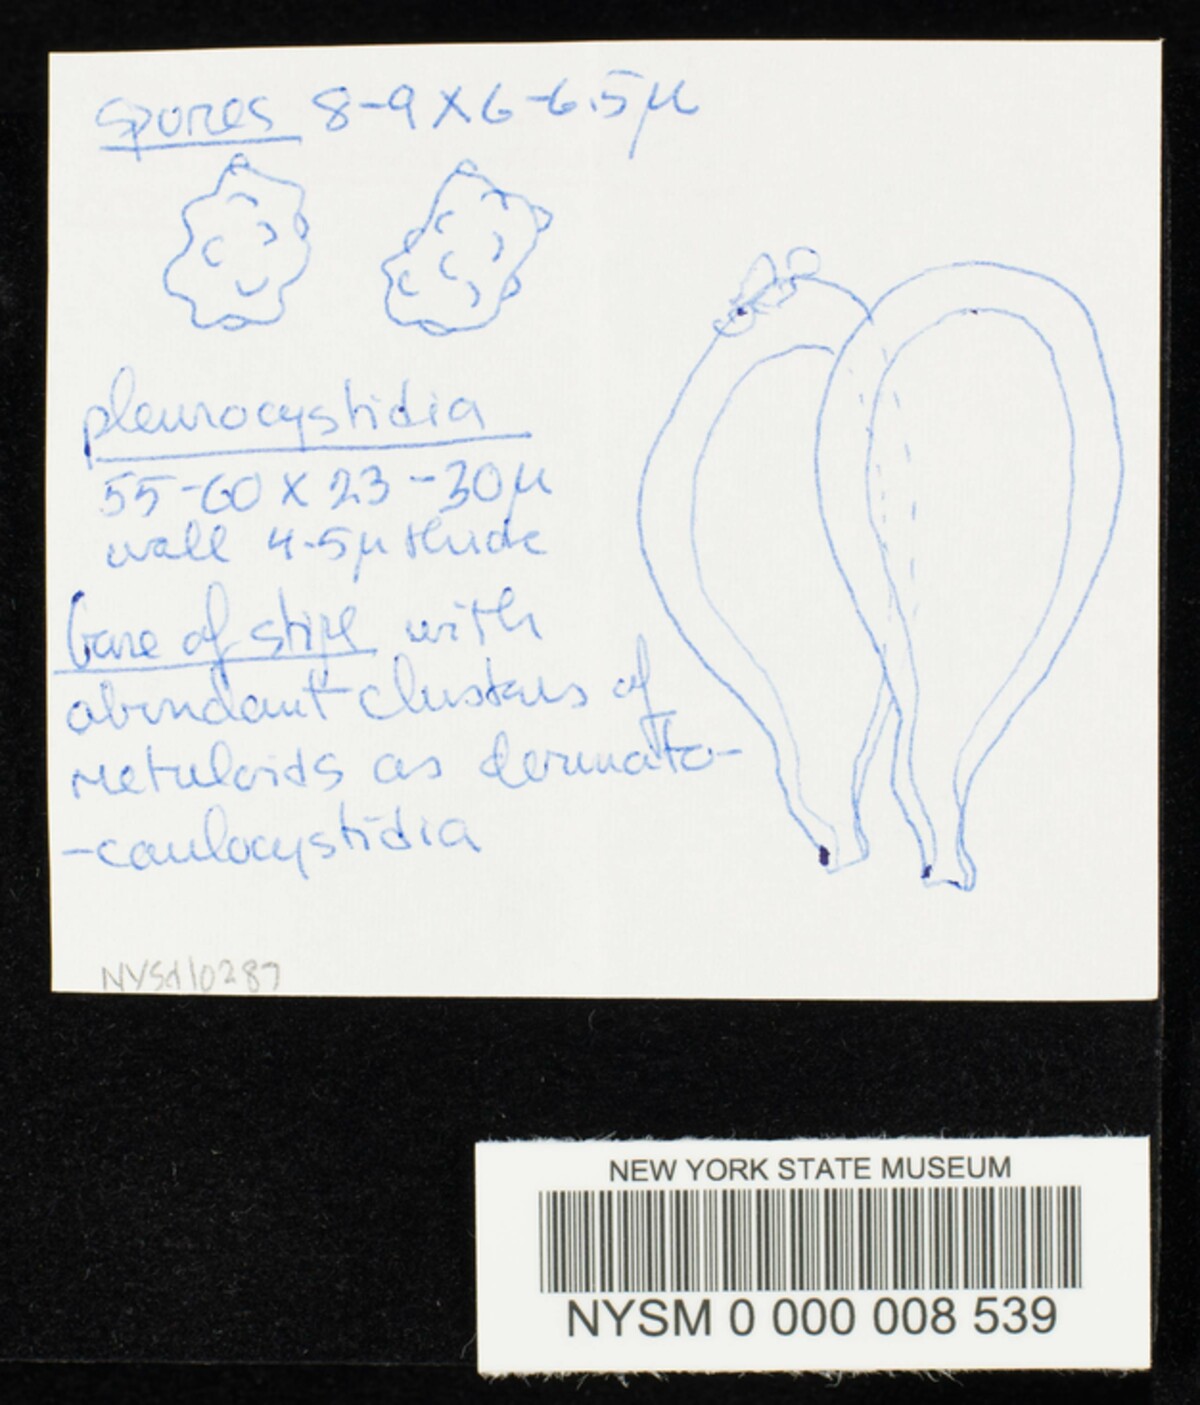 spores 8-9 X 6-6.5 μ
pleurocystidia
55-60 X 23-30 μ
wall 4-5 μ thick
base of stipe with
abundant clusters of
metuloids as dermato-
-caulocystidia
NYSd10287
NEW YORK STATE MUSEUM
NYSM 0 000 008 539